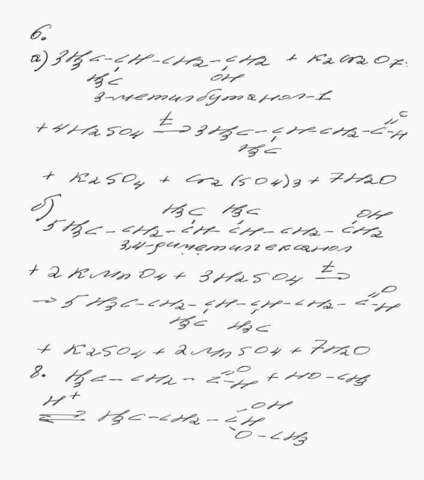 6.
а) 3H3C-CH-CH2-CH2 + K2Cr2O7+
H3C OH
3-метилбутанол-1
+4H2SO4 t→ 3H3C-CH-CH2-C=O-H
H3C
+ K2SO4 + Cr2(SO4)3 + 7H2O
б) H3C H3C OH
5H3C-CH2-CH-CH-CH2-CH2
3,4-диметилгексанол
+ 2KMnO4 + 3H2SO4 t→
→ 5H3C-CH2-CH-CH-CH2-C=O-H
H3C H3C
+ K2SO4 + 2MnSO4 + 7H2O
8. H3C-CH2-C=O-H + HO-CH3
H+ ⇄ H3C-CH2-CH-OH
O-CH3